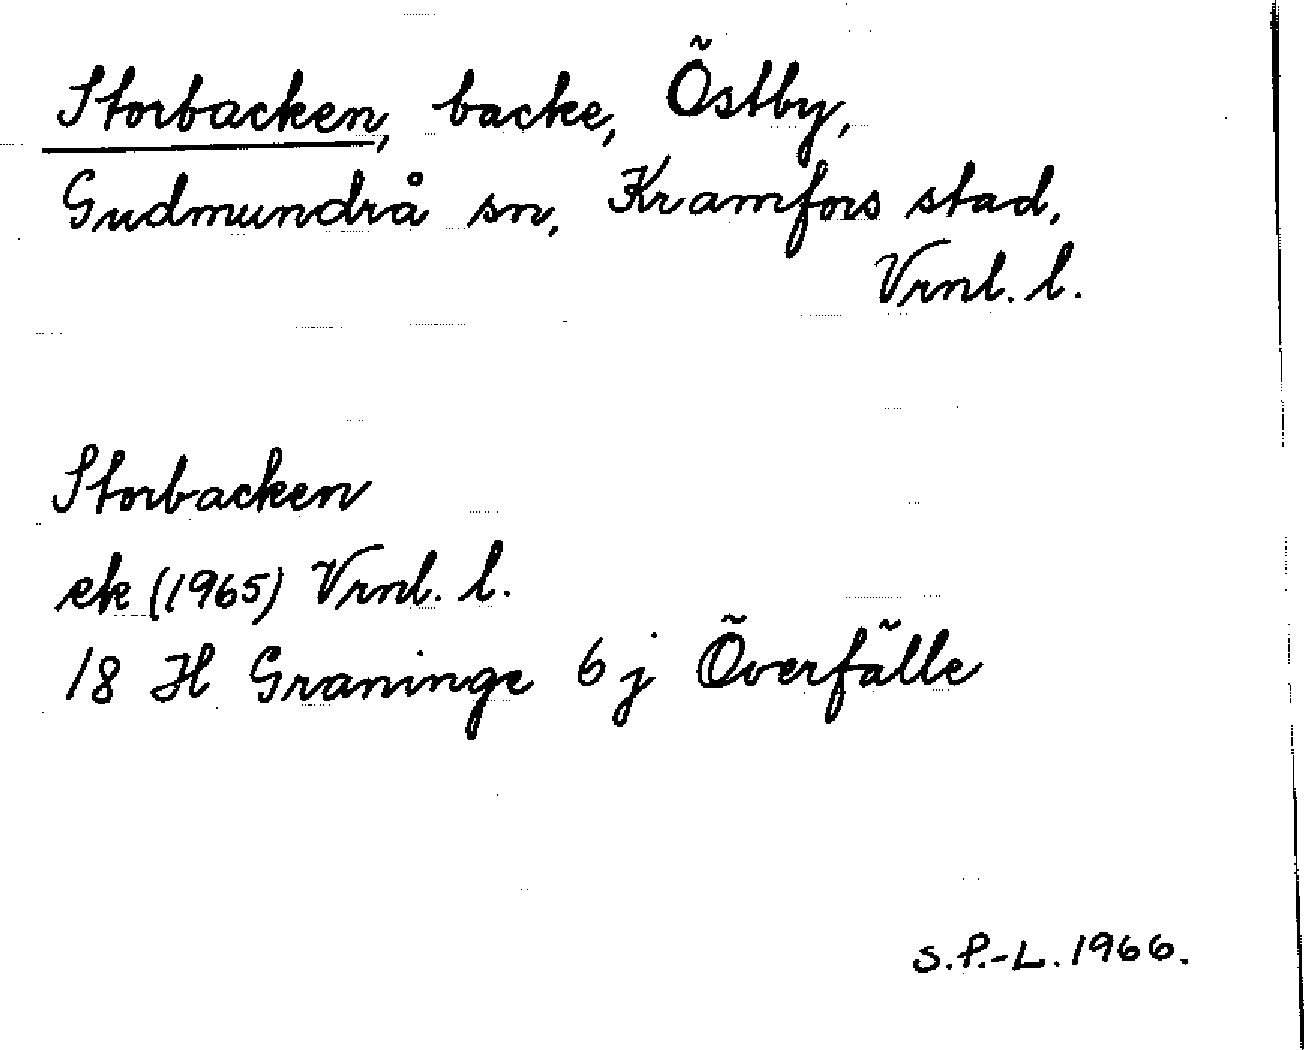 Storbacken, backe, Östby,
Gudmundrå sn, Kramfors stad,
Vrnl. l.
Storbacken
ek (1965) Vrnl. l.
18 H Graninge 6 j Överfälle
S.P.-L. 1966.